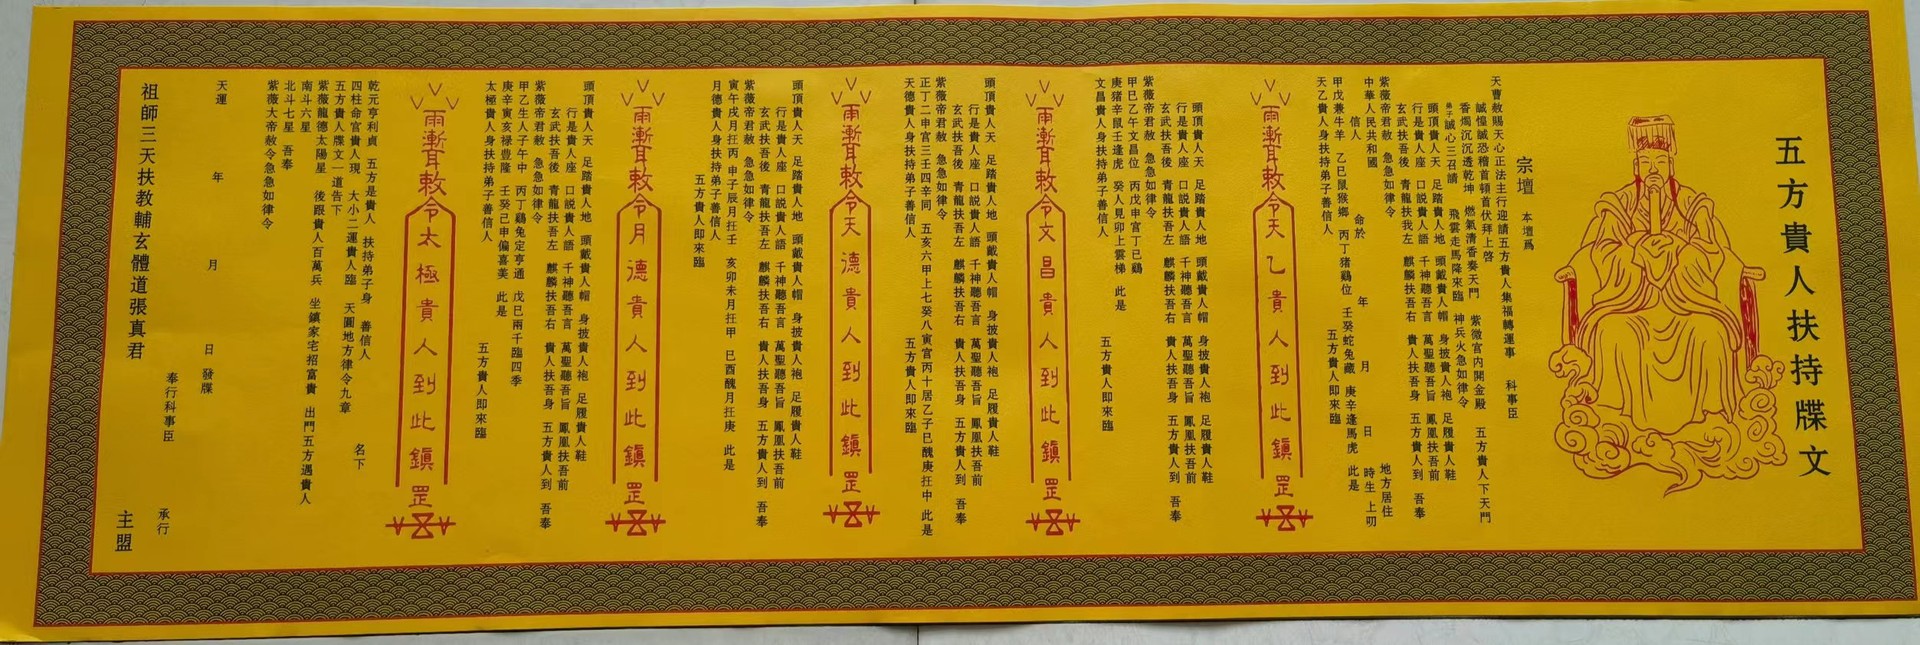 五方貴人扶持牒文
宗壇 本壇爲
天曹敕賜天心正法主行迎請五方貴人集福轉運事 科事臣
誠惶誠恐稽首頓首伏拜上啓
香燭沉沉透乾坤 燃氣清香奏天門 紫微宮内開金殿 五方貴人下天門
弟子誠心三召請 飛雲走馬降來臨 神兵火急如律令
頭頂貴人天 足踏貴人地 頭戴貴人帽 身披貴人袍 足履貴人鞋
行是貴人座 口説貴人語 千神聽吾言 萬聖聽吾旨 鳳凰扶吾前
玄武扶吾後 青龍扶我左 麒麟扶吾右 貴人扶吾身 五方貴人到 吾奉
紫薇帝君敕 急急如律令
中華人民共和國 地方居住
信人 命於 年 月 日 時生 上叨
甲戊兼牛羊 乙巳鼠猴鄉 丙丁猪鷄位 壬癸蛇兔藏 庚辛逢馬虎 此是
天乙貴人身扶持弟子善信人 五方貴人即來臨
雨漸耳敕令天乙貴人到此鎮罡
頭頂貴人天 足踏貴人地 頭戴貴人帽 身披貴人袍 足履貴人鞋
行是貴人座 口説貴人語 千神聽吾言 萬聖聽吾旨 鳳凰扶吾前
玄武扶吾後 青龍扶吾左 麒麟扶吾右 貴人扶吾身 五方貴人到 吾奉
紫薇帝君敕 急急如律令
甲巳乙午文昌位 丙戊申宮丁巳鷄
庚猪辛鼠壬逢虎 癸人見卯上雲梯 此是
文昌貴人身扶持弟子善信人 五方貴人即來臨
雨漸耳敕令文昌貴人到此鎮罡
頭頂貴人天 足踏貴人地 頭戴貴人帽 身披貴人袍 足履貴人鞋
行是貴人座 口説貴人語 千神聽吾言 萬聖聽吾旨 鳳凰扶吾前
玄武扶吾後 青龍扶吾左 麒麟扶吾右 貴人扶吾身 五方貴人到 吾奉
紫薇帝君敕 急急如律令
正丁二申宮三壬四辛同 五亥六甲上七癸八寅宮丙十居乙子巳醜庚抂中 此是
天德貴人身扶持弟子善信人 五方貴人即來臨
雨漸耳敕令天德貴人到此鎮罡
頭頂貴人天 足踏貴人地 頭戴貴人帽 身披貴人袍 足履貴人鞋
行是貴人座 口説貴人語 千神聽吾言 萬聖聽吾旨 鳳凰扶吾前
玄武扶吾後 青龍扶吾左 麒麟扶吾右 貴人扶吾身 五方貴人到 吾奉
紫薇帝君敕 急急如律令
寅午戌月抂丙 申子辰月抂壬 亥卯未月抂甲 巳酉醜月抂庚 此是
月德貴人身扶持弟子善信人 五方貴人即來臨
雨漸耳敕令月德貴人到此鎮罡
頭頂貴人天 足踏貴人地 頭戴貴人帽 身披貴人袍 足履貴人鞋
行是貴人座 口説貴人語 千神聽吾言 萬聖聽吾旨 鳳凰扶吾前
玄武扶吾後 青龍扶吾左 麒麟扶吾右 貴人扶吾身 五方貴人到 吾奉
紫薇帝君敕 急急如律令
甲乙生人子午中 丙丁鷄兔定亨通 戊巳兩千臨四季
庚辛寅亥禄豊隆 壬癸己申偏喜美 此是
太極貴人身扶持弟子善信人 五方貴人即來臨
雨漸耳敕令太極貴人到此鎮罡
乾元亨利貞 五方是貴人 扶持弟子身 善信人 名下
四柱命宮貴人現 大小二運貴人臨 天圓地方律令九章
五方貴人牒文一道告下
紫薇龍德太陽星 後跟貴人百萬兵 坐鎮家宅招富貴 出門五方遇貴人
南斗六星
北斗七星 吾奉
紫薇大帝敕令急急如律令
天運 年 月 日 發牒
奉行科事臣 承行
祖師三天扶教輔玄體道張真君 主盟